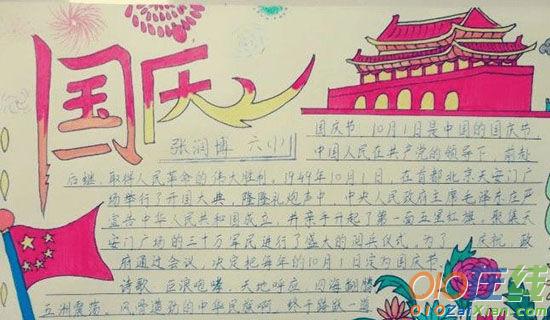 国庆
张润博 六（1）
国庆节，10月1日是中国的国庆节，
中国人民在共产党的领导下，前赴
后继，取得人民革命的伟大胜利，1949年10月1日，在首都北京天安门广
场举行了开国大典，隆隆礼炮声中，中央人民政府主席毛泽东庄严
宣告中华人民共和国成立，并亲手升起了第一面五星红旗，聚集天
安门广场的三十万军民进行了盛大的阅兵仪式，为了 庆祝，政
府通过会议，决定把每年的10月1日定为国庆节。
诗歌：巨浪咆哮，天地呼应，四海翻腾
五洲震荡，风雷激励的中华民族啊，终于踏破一道
在线
ZaiXian.com